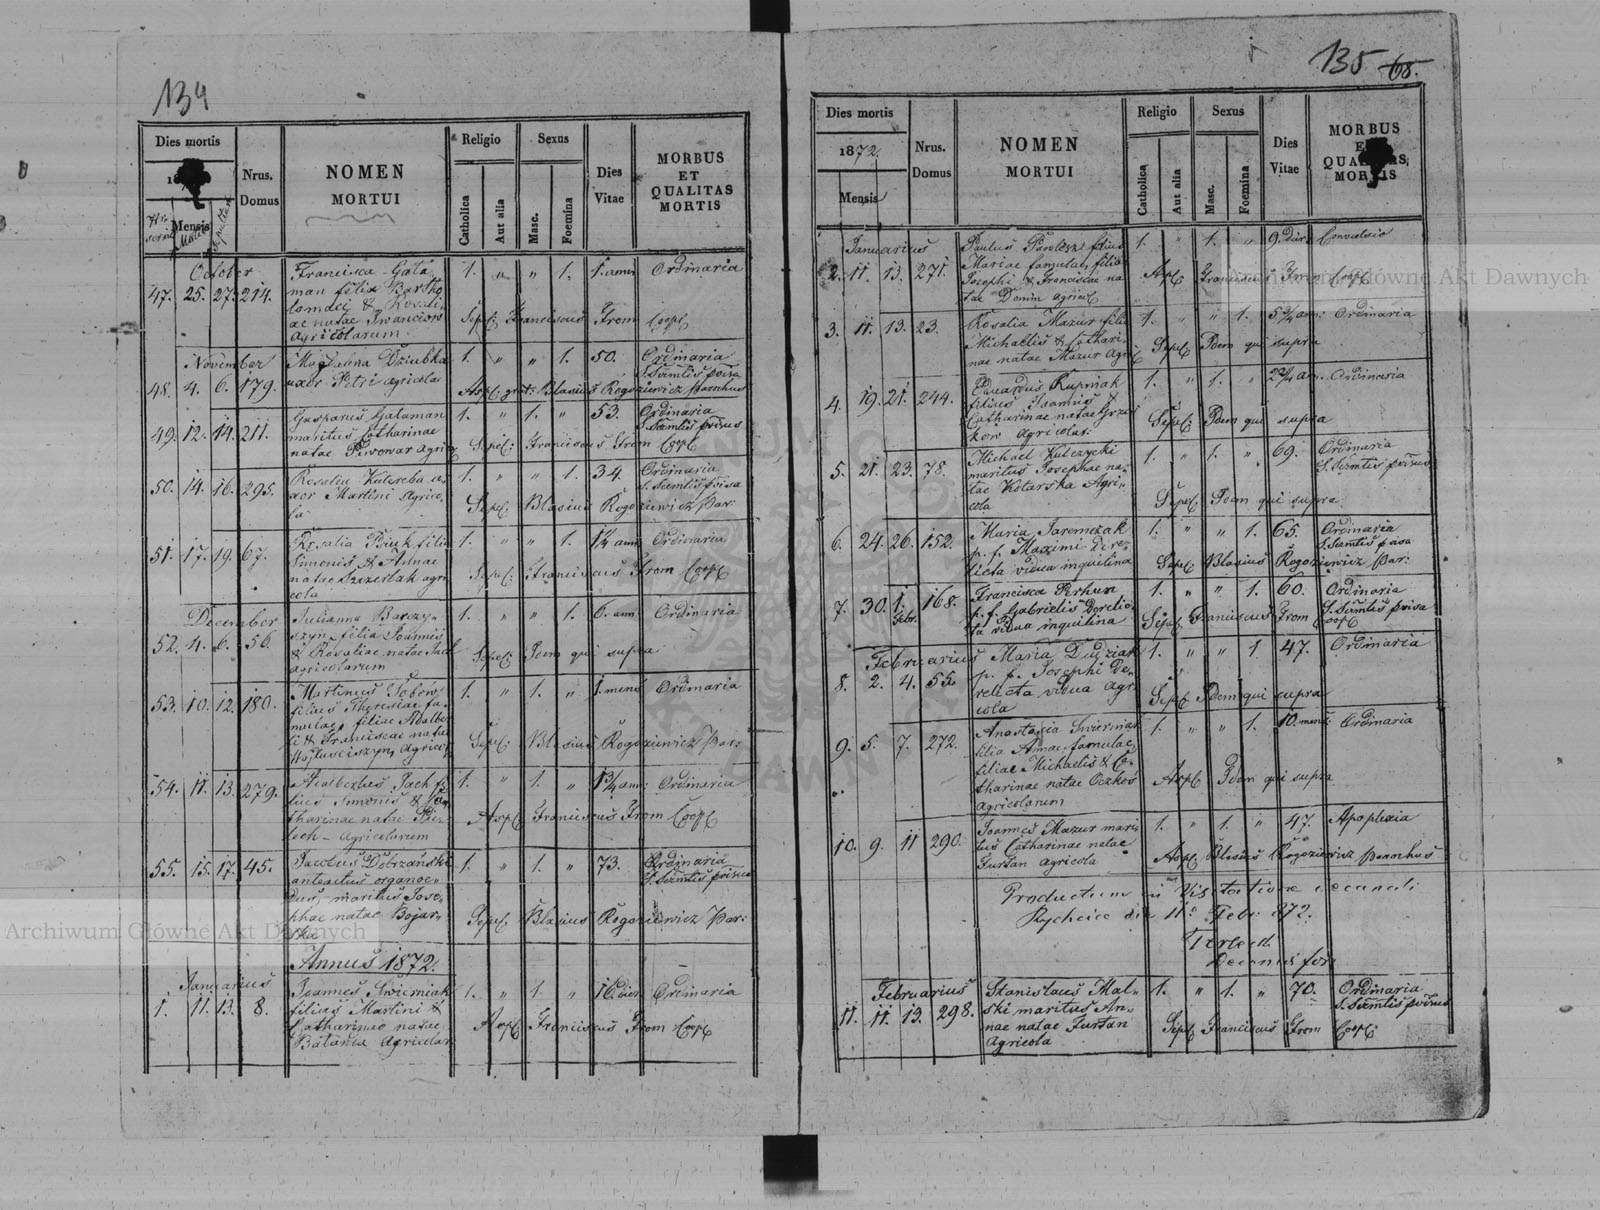 134
Dies mortis
Nrus. Domus
NOMEN MORTUI
Religio
Catholica
Aut alia
Sexus
Masc.
Foemina
Dies Vitae
MORBUS ET QUALITAS MORTIS
Mensis
October
47. 25. 27. 214. Francisca Gata 1. " " 1. 1. Ordinaria
man filia Bartho
lomaei &
ac natae
Agricolarum
Sepel: Franciscus From Coop
November
48. 4. 6. 179. Magdalena Dziubka 1. " " 1. 50. Ordinaria
uxor Petri agricola S. Scmtis
Blasius Rogoziewicz Parochus
49. 12. 14. 211. Gasparus Gataman 1. " 1. " 53. Ordinaria
maritus Catharinae S. Scmtis
natae Piwowar Agric
Sepel: Franciscus From Coop
50. 14. 16. 295. Rosalia Kulereba u 1. " " 1. 34. Ordinaria
xor Martini Agrico S. Scmtis
la
Sepel: Blasius Rogoziewicz Par:
51. 17. 19. 67. Rosalia filia 1. " " 1. 1¼ ann Ordinaria
Simonis & Annae
natae Szczerbak agri
cola
Sepel: Franciscus From Coop
December
52. 4. 6. 56. Julianna Barczy 1. " " 1. 6. ann Ordinaria
szyn filia Joannis
& Rosaliae natae
agricolarum
Sepel: Idem qui supra
53. 10. 12. 180. Martinus 1. " 1. " 1. mens Ordinaria
filius Theresiae fa
mulae, filiae Adalber
ti & Franciscae natae
Agric
Sepel: Blasius Rogoziewicz Par:
54. 11. 13. 279. Adalbertus fi 1. " 1. " 1¾ ann: Ordinaria
lius Simonis & Ca
tharinae natae
Agricolarum
Franciscus From Coop
55. 15. 17. 45. Jacobus Dobrzański 1. " 1. " 73. Ordinaria
anteactus organoe S. Scmtis
dus, maritus Jose
phae natae Bojar
ska
Sepel: Blasius Rogoziewicz Par:
Annus 1872.
Januarius
1. 11. 13. 8. Joannes Świerniak 1. " 1. " Ordinaria
filius Martini &
Catharinae natae
Agricolar
Franciscus From Coop
135 68.
Dies mortis
1872.
Mensis
Nrus. Domus
NOMEN MORTUI
Religio
Catholica
Aut alia
Sexus
Masc.
Foemina
Dies Vitae
MORBUS ET QUALITAS MORTIS
Januarius
2. 11. 13. 271. Paulus filius 1. " 1. " 9. dier Convulsio
Mariae famulae, filiae
Josephi & Franciscae na
tae Agricol
Franciscus From Coop
3. 11. 13. 23. Rosalia Mazur filia 1. " " 1. 5¾ ann: Ordinaria
Michaelis & Cathari
nae natae Mazur Agri
Sepel: Idem qui supra
4. 19. 21. 244. Eduardus Kupniak 1. " 1. " Ordinaria
filius Joannis &
Catharinae natae
Agricolar:
Sepel: Idem qui supra
5. 21. 23. 78. Michael Kulczycki 1. " 1. " 69. Ordinaria
maritus Josephae na S. Scmtis
tae Kotarska Agri
cola
Sepel: Idem qui supra
6. 24. 26. 152. Maria Jaremczak 1. " " 1. 65. Ordinaria
p. f. Maximi dere S. Scmtis
licta vidua inquilina
Sepel: Blasius Rogoziewicz Par:
7. 30. 1. Febr. 168. Francisca Perhun 1. " " 1. 60. Ordinaria
p. f. Gabrielis derelic S. Scmtis
ta vidua inquilina
Sepel: Franciscus From Coop
Februarius
8. 2. 4. 55. Maria Dudziak 1. " " 1 47. Ordinaria
p. f. Josephi de
relicta vidua agri
cola
Sepel: Idem qui supra
9. 5. 7. 272. Anastasia Świerniak 1. " " 1. 10. mens: Ordinaria
filia Annae famulae,
filiae Michaelis & Ca
tharinae natae Oczkoś
Agricolarum
Idem qui supra
10. 9. 11 290. Joannes Mazur mari 1. " 1. " 47. Apoplexia
tus Catharinae natae
Furtan agricola
Blasius Rogoziewicz Parochus
Productum in Visitatione decanali
Rychcice die 11º Febr 872.
Decanus for:
Februarius
11. 11. 13. 298. Stanislaus Mal 1. " 1. " 70. Ordinaria
ski maritus An S. Scmtis
nae natae Furtan
Agricola
Sepel: Franciscus From Coop:
Archiwum Główne Akt Dawnych
Archiwum Główne Akt Dawnych